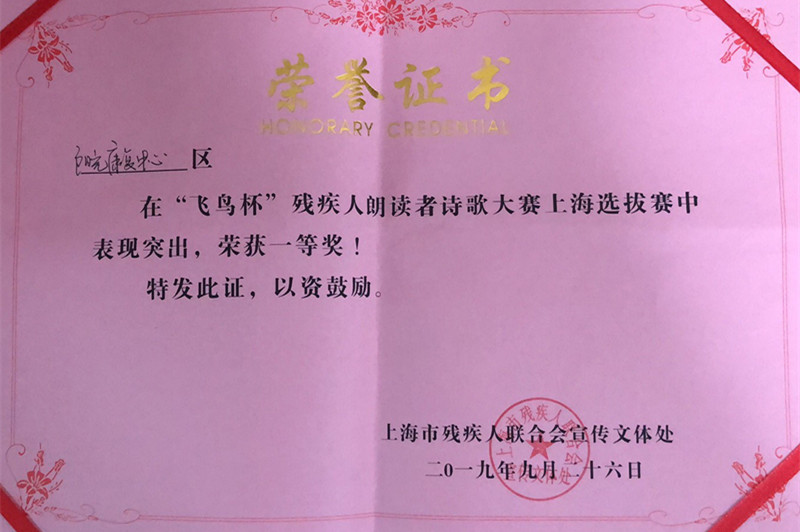 荣誉证书
HONORARY CREDENTIAL
康复中心 区
在“飞鸟杯”残疾人朗读者诗歌大赛上海选拔赛中
表现突出，荣获一等奖！
特发此证，以资鼓励。
上海市残疾人联合会宣传文体处
二0一九年九月二十六日